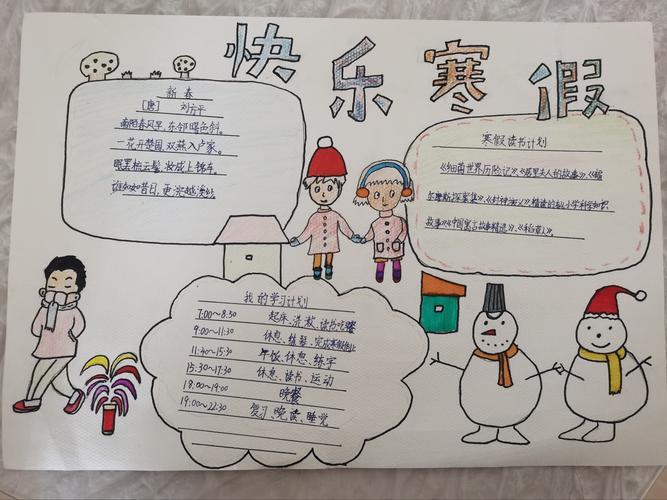 快乐寒假
新春
[唐] 刘方平
南陌春风早,东邻曙色斜。
一花开楚国,双燕入卢家。
眠罢梳云髻,妆成上锦车。
谁如昔日,更浣越溪纱。
寒假读书计划
《细菌世界历险记》、《居里夫人的故事》、《福
尔摩斯探案集》、《封神演义》精读的《小学科学知识
故事》《中国寓言故事精选》、《稻草人》。
我的学习计划
7:00~8:30 起床、洗漱、读书吃餐
9:00~11:30 休息、练琴、完成寒假作业
11:40~15:30 午饭、休息、练字
15:30~17:30 休息、读书、运动
18:00~19:00 晚餐
19:00~22:30 复习、晚读、睡觉